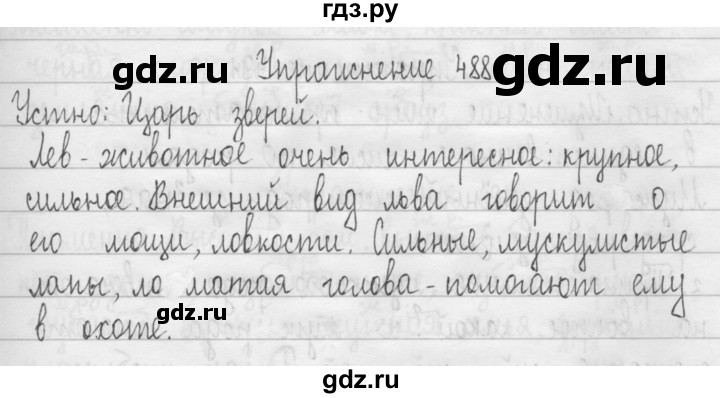 гдз.ру
gdz.ru gdz.ru
Упражнение 488
Устно: Царь зверей.
Лев - животное очень интересное: крупное,
сильное. Внешний вид льва говорит о
его мощи, ловкости. Сильные, мускулистые
лапы, ло матая голова - помогают ему
в охоте.
gdz.ru
gdz.ru